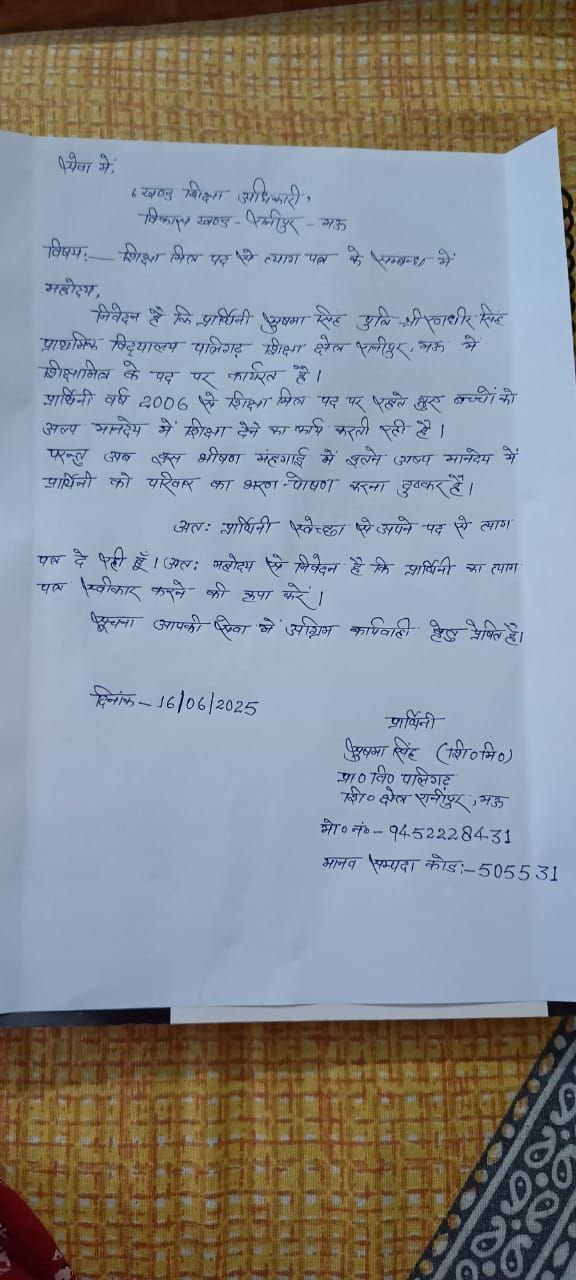 सेवा में,
खण्ड शिक्षा अधिकारी,
विकास खण्ड - रानीपुर - मऊ
विषय:- शिक्षा मित्र पद से त्याग पत्र के सम्बन्ध में
महोदय,
निवेदन है कि प्रार्थिनी सुषमा सिंह पुत्रि श्री रणधीर सिंह
प्राथमिक विद्यालय पलिगढ़ शिक्षा क्षेत्र रानीपुर, मऊ में
शिक्षामित्र के पद पर कार्यरत है।
प्रार्थिनी वर्ष 2006 से शिक्षा मित्र पद पर रहते हुए बच्चों को
अल्प मानदेय में शिक्षा देने का कार्य करती रही है।
परन्तु अब इस भीषण मंहगाई में इतने अल्प मानदेय में
प्रार्थिनी को परिवार का भरण-पोषण करना दुष्कर है।
अतः प्रार्थिनी स्वेच्छा से अपने पद से त्याग
पत्र दे रही हूँ। अतः महोदय से निवेदन है कि प्रार्थिनी का त्याग
पत्र स्वीकार करने की कृपा करें।
सूचना आपकी सेवा में अग्रिम कार्यवाही हेतु प्रेषित है।
दिनांक - 16/06/2025
प्रार्थिनी
सुषमा सिंह (शि०मि०)
प्रा० वि० पलिगढ़
शि० क्षेत्र रानीपुर, मऊ
मो० नं० - 9452228431
मानव सम्पदा कोड:- 505531